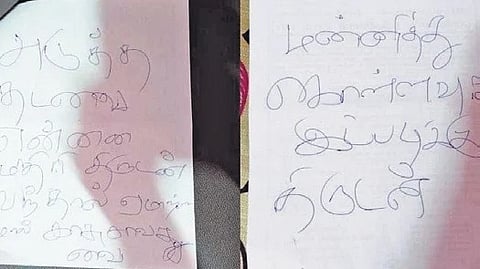 அடுத்த
தடவை
என்னை
மதிரி திருடன்
வந்தால்
மல்
மன்னித்து
கொள்ளவும்
இப்படிக்கு
திருடன்